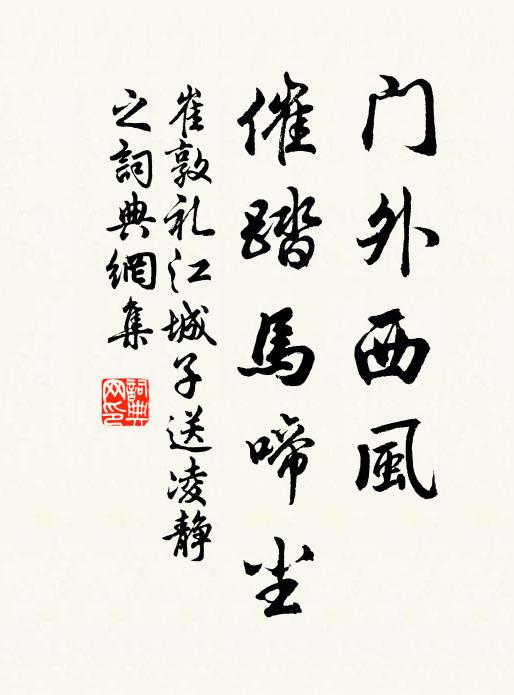 门外西風
催踏馬啼尘
崔敦礼江城子送凌静
之詞典網集
詞典
网印